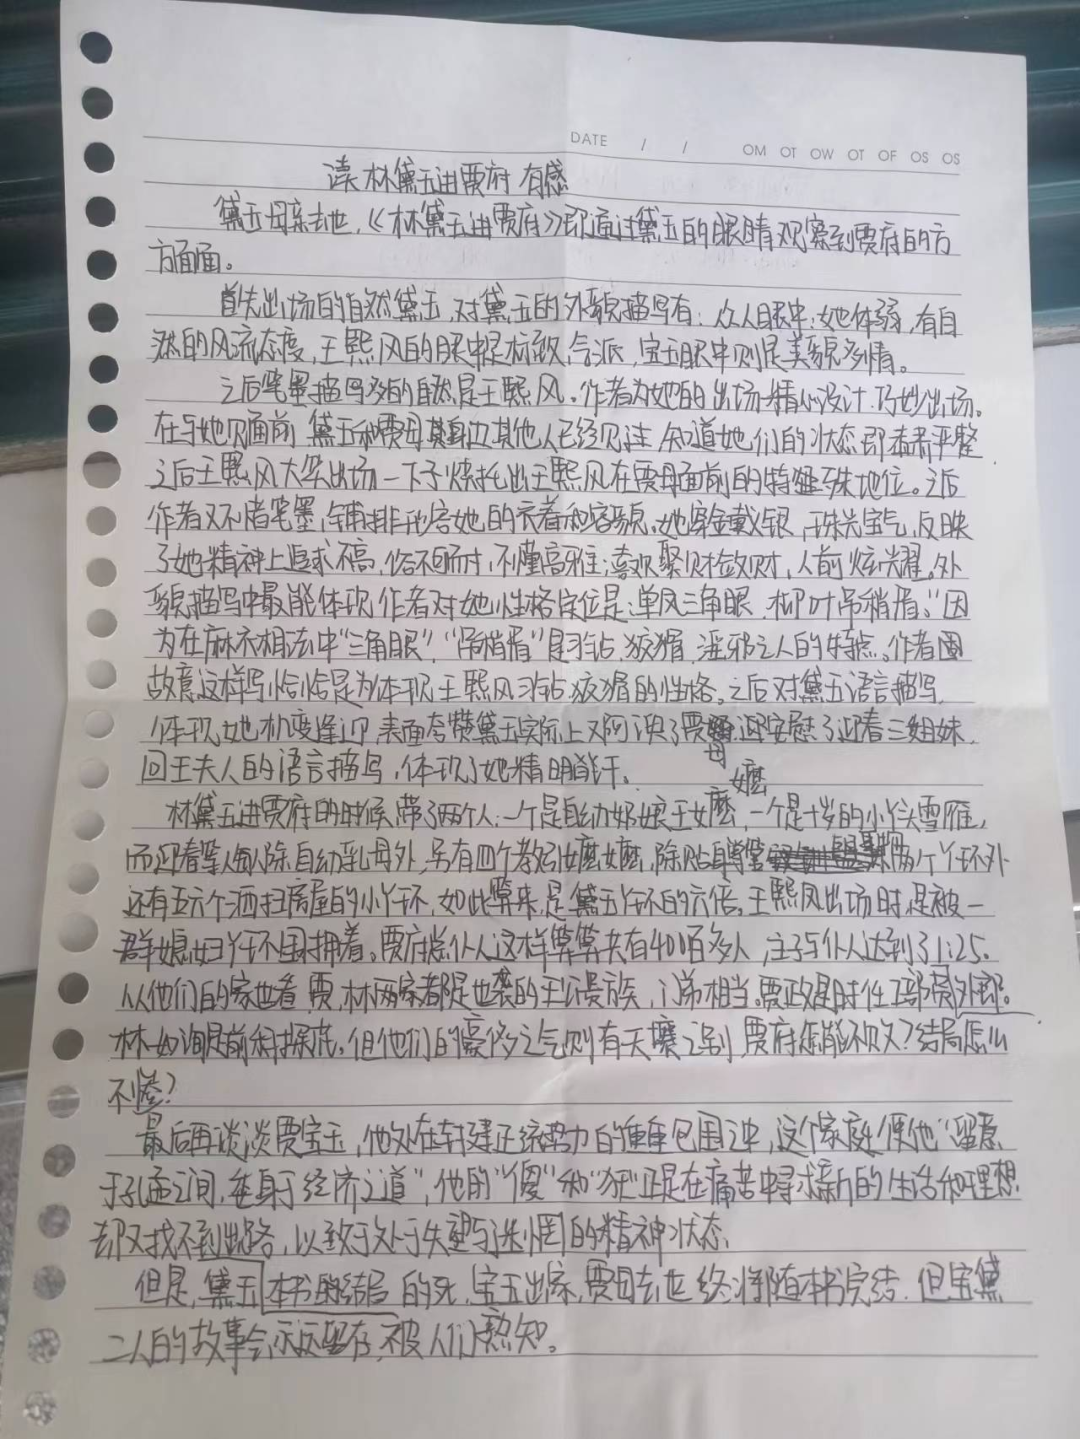 DATE / / OM OT OW OT OF OS OS
读林黛玉进贾府有感
黛玉母亲去世，《林黛玉进贾府》即通过黛玉的眼睛观察到贾府的方
方面面。
首先出场的自然黛玉，对黛玉的外貌描写有：众人眼中：她体弱，有自
然的风流态度，王熙凤的眼中是标致，气派，宝玉眼中则是美貌多情。
之后笔墨描写多的自然是王熙凤。作者为她的出场精心设计巧妙出场。
在与她见面前黛玉和贾母其身边其他人已经见过，知道她们的状态即者肃平整
之后王熙凤大笑出场一下子烘托出王熙凤在贾母面前的特殊地位。之后
作者又不惜笔墨，铺排形容她的衣着和容貌，她穿金戴银，珠光宝气，反映
了她精神上追求不高，俗不可耐，不懂高雅；喜欢聚财敛财，人前炫耀。外
貌描写中最能体现作者对她性格定位是：单凤三角眼，柳叶吊稍眉，"因
为在麻衣相法中"三角眼"，"吊稍眉"是刁钻，狡猾，淫邪之人的特点。作者
故意这样写恰恰是为体现王熙凤刁钻狡猾的性格。之后对黛玉语言描写，
体现她机变逢迎，表面夸赞黛玉实际上又阿谀了贾母安慰了迎春三姐妹，
回王夫人的语言描写，体现了她精明能干。
林黛玉进贾府的时候带了两个人：一个是自幼奶娘王嬷嬷，一个是十岁的小丫头雪雁，
而迎春等人除自幼乳母外，另有四个教引嬷嬷，除贴身掌管两个丫环外
还有五六个洒扫房屋的小丫环，如此算来，是黛玉丫环的六倍。王熙凤出场时，是被一
群媳妇丫环围拥着。贾府总仆人这样算算共有400百多人，主子与仆人达到了1:25。
从他们的家世看，贾，林两家都是世袭的王公贵族，门第相当。贾政是时任工部员外郎。
林如海是前科探花。但他们的豪侈之气则有天壤之别，贾府怎能不败？结局怎么
不惨？
最后再谈谈贾宝玉，他处在封建正统势力的重重包围之中，这个家庭便他"留意
于孔孟之间，委身于经济之道"，他的"傻"和"狂"正是在痛苦中寻求新的生活和理想
却又找不到出路，以致于处于失望与迷惘的精神状态
但是，黛玉本书结局的死，宝玉出家，贾母去世终将随本书完结，但宝黛
二人的故事会永远留存，被人们熟知。